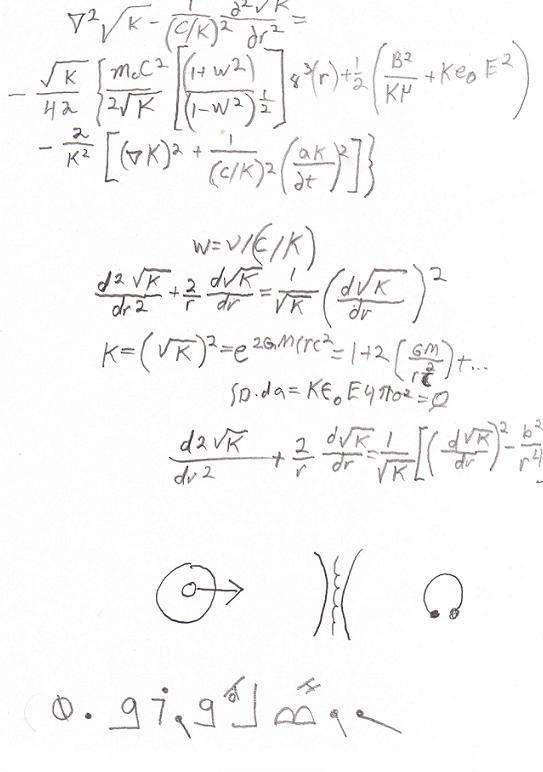 ∇²√K - 1/(C/K)² ∂²√K/∂r² =
- √K/42 { m₀C²/2√K [(1+W²)/(1-W²)^½] 8³(r) + ½ (B²/Kμ + Ke₀E²)
- 2/K² [(∇K)² + 1/(C/K)² (aK/∂t)²] }
W=V/(C/K)
d2√K/dr2 + 2/r d√K/dr = 1/√K (d√K/dr)²
K=(√K)²=e^2GM/rc²=1+2(GM/rc²)+...
∫D.da=Kε₀E4πo²=Q
d2√K/dr2 + 2/r d√K/dr = 1/√K [(d√K/dr)² - b²/r⁴